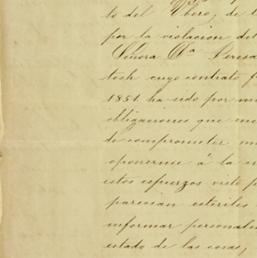 to del Ebro, de
por la violacion del
Señora Dª Teresa
tosh cuyo contrato f
1851. ha sido por
obligaciones que me
de comprometer m
oponerme á la
estos esfuerzos visto p
parecian esteriles
informar personal
estado de las cosas,